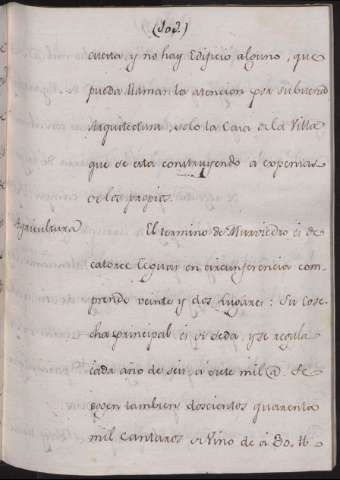 cuera, y no hay Edificio alguno, que
pueda llamar la atencion por su buena
Arquitectura, solo la Casa de la Villa
que se está construyendo á expensas
de los propios.
Agricultura El termino de Murviedro es de
catorce leguas en circunferencia com-
prende veinte y dos Lugares: Su Cose-
cha principal es de seda, y se regula
cada año de seis, a siete mil @. Se
cogen tambien doscientos quarenta
mil Cantaros de Vino de á 30. tt